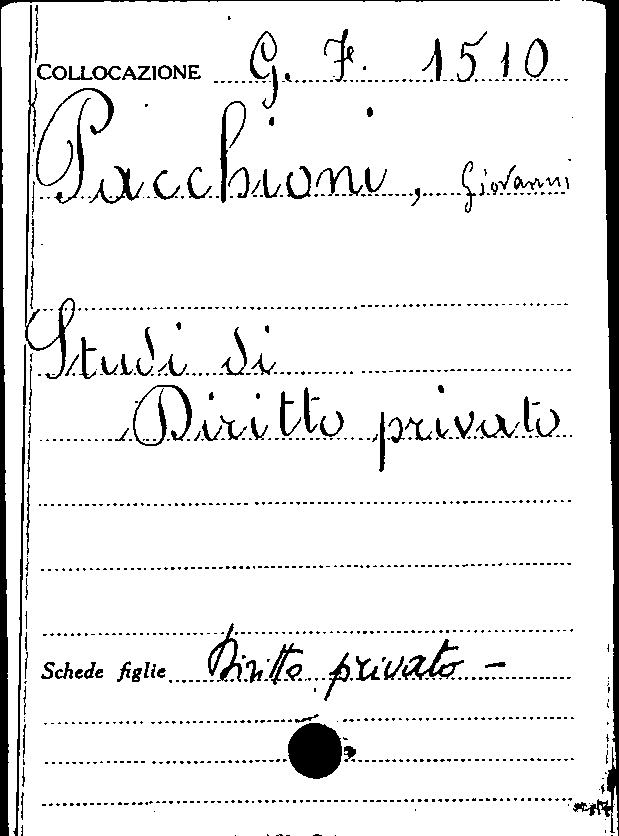 COLLOCAZIONE G. F. 1510
Pacchioni, Giovanni
Studi di
Diritto privato
Schede figlie Diritto privato –